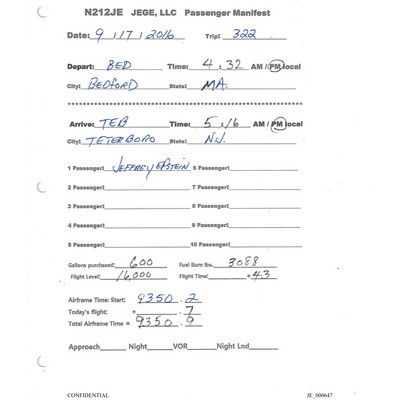 N212JE JEGE, LLC Passenger Manifest
Date: 9 / 17 / 2016 Trip: 322
Depart: BED Time: 4 : 32 AM / PM local
City: BEDFORD State: MA.
Arrive: TEB Time: 5 : 16 AM / PM local
City: TETERBORO State: N.J.
1 Passenger: JEFFREY EPSTEIN 6 Passenger:
2 Passenger: 7 Passenger:
3 Passenger: 8 Passenger:
4 Passenger: 9 Passenger:
5 Passenger: 10 Passenger:
Gallons purchased: 600 Fuel Burn lbs. 3088
Flight Level: 16,000 Flight Time: +43
Airframe Time: Start: 9350 . 2
Today's flight: + . 7
Total Airframe Time = 9350 . 9
Approach Night VOR Night Lnd
CONFIDENTIAL JE_000647